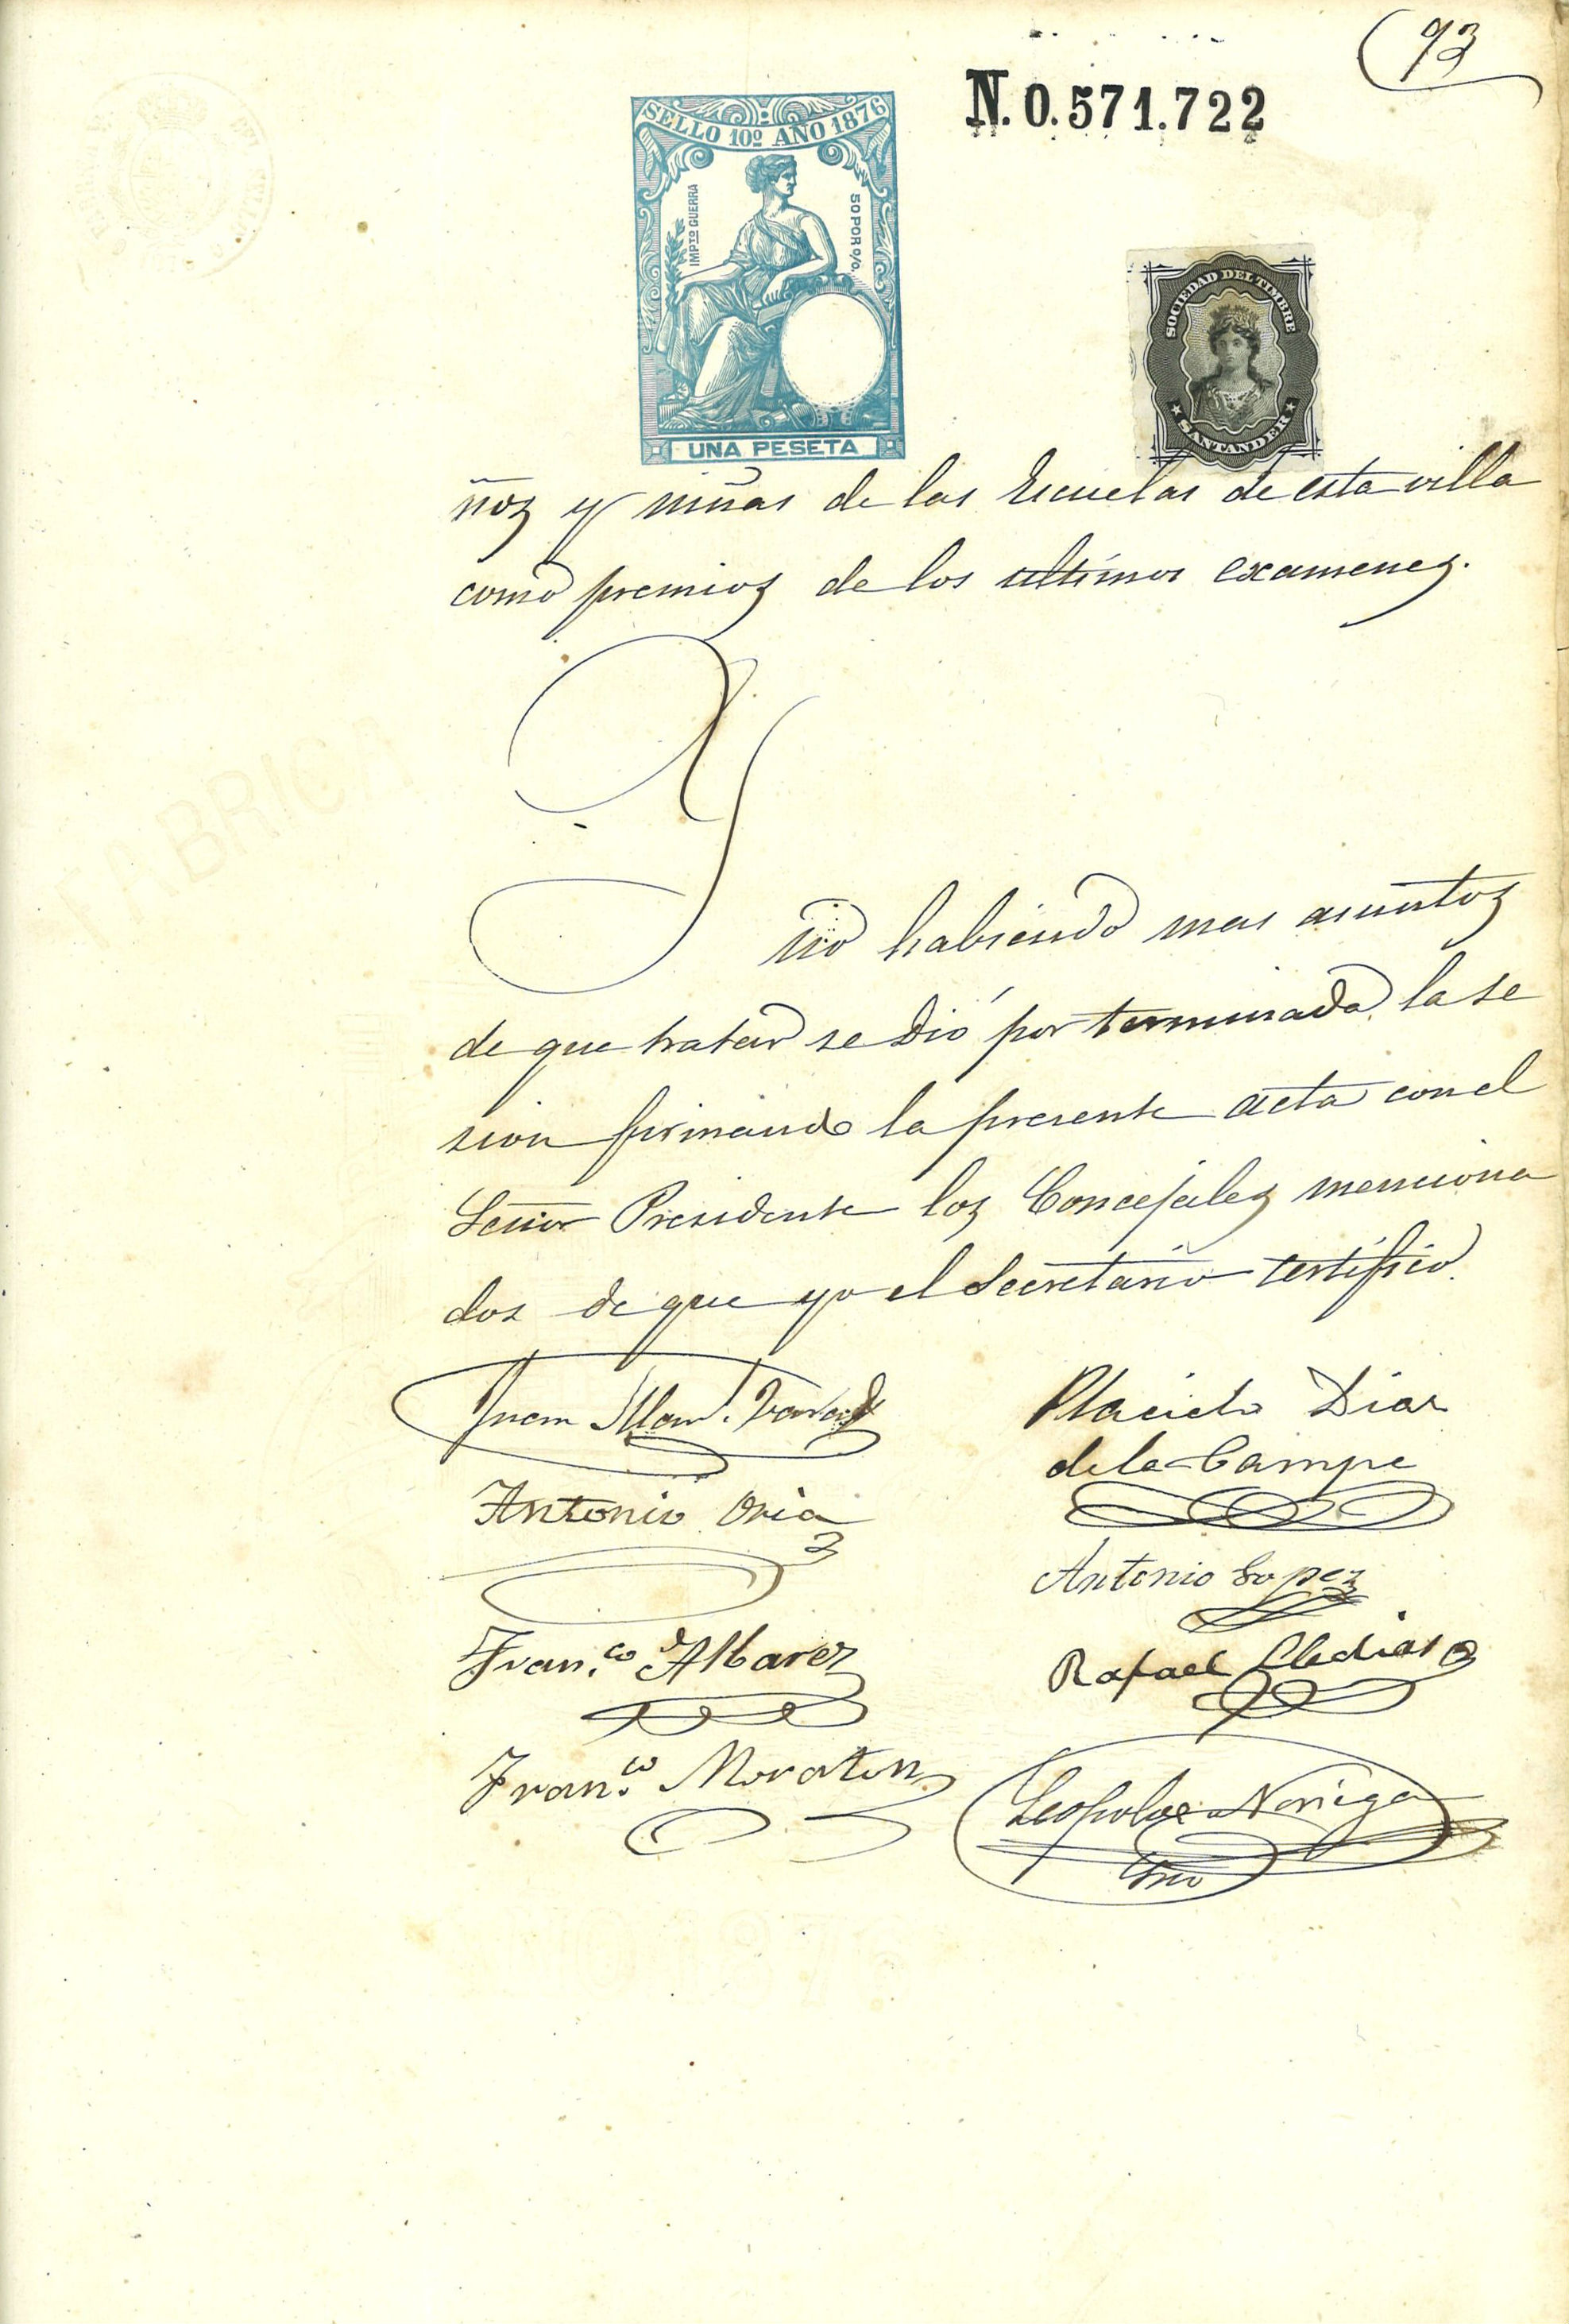 93
N. 0.571.722
SELLO 10º AÑO 1876
IMPTO GUERRA
50 POR 0/0.
UNA PESETA
SOCIEDAD DEL TIMBRE
SANTANDER
FABRICA
ños y niñas de las Escuelas de esta villa
como premios de los ultimos examenes.
Y
no habiendo mas asuntos
de que tratar se dió por terminada la se
sion firmando la presente acta con el
Señor Presidente los Concejales menciona
dos de que yo el Secretario certifico.
Juan Man.
Placido Diaz
de la Campa
Antonio Oria
Antonio Lopez
Fran.co Albarez
Rafael
Fran.co Moraton
Leopoldo Noriega
Srio